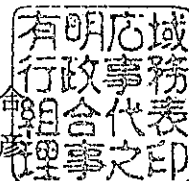 有明広域
行政事務
組合代表
理事之印
彦